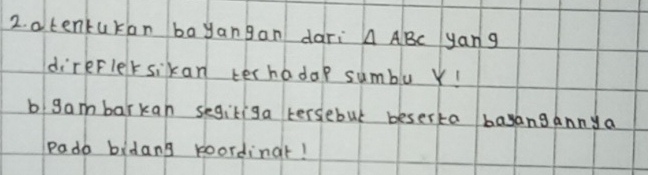 2. a tentukan bayangan dari Δ ABC yang
direfleksikan terhadap sumbu Y!
b. gambarkan segitiga tersebut beserta bayangannya
pada bidang koordinat!